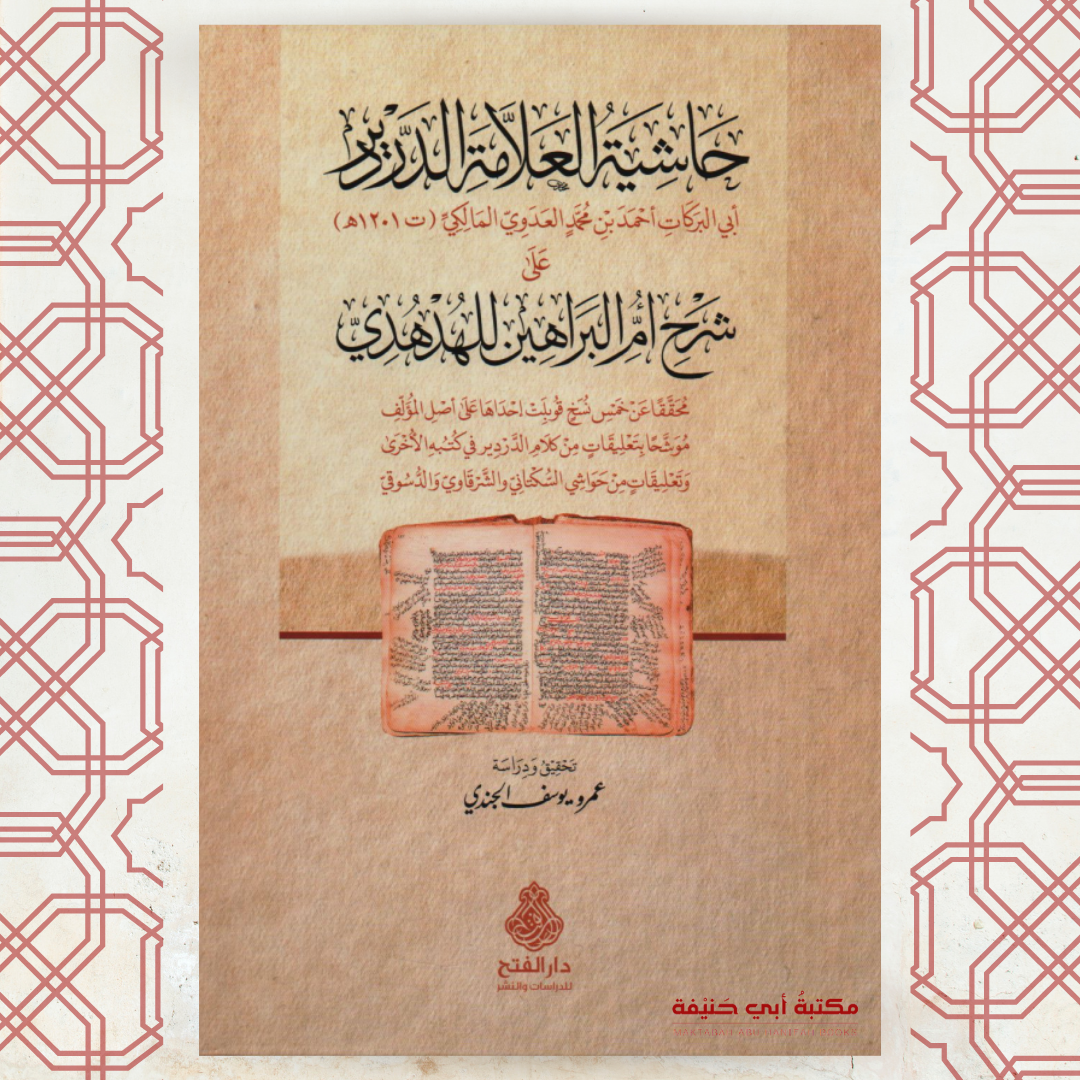 حَاشِيَةُ العَلاَّمَةِ الدَّرْدِيرِ
أبي البَرَكَاتِ أحْمَدَ بْنِ مُحَمَّدٍ العَدَوِيِّ المَالِكِيِّ (ت ١٢٠١هـ)
عَلَىٰ
شَرْحِ أُمِّ البَرَاهِيْنِ لِلْهُدْهُدِيِّ
مُحَقَّقًا عَنْ خَمْسِ نُسَخٍ قُوبِلَتْ إِحْدَاهَا عَلَى أصْلِ المُؤَلِّفِ
مُوَشَّحًا بِتَعْلِيقَاتٍ مِنْ كَلَامِ الدَّرْدِيرِ في كُتُبِهِ الأُخْرَىٰ
وَتَعْلِيقَاتٍ مِنْ حَوَاشِي السُّكْتَانِيِّ والشَّرْقَاوِيِّ وَالدُّسُوقِيِّ
تَحْقِيقُ وَدِرَاسَة
عمرو يوسف الجندي
دار الفتح
للدراسات والنشر
مكتبةُ أبي حَنيْفة